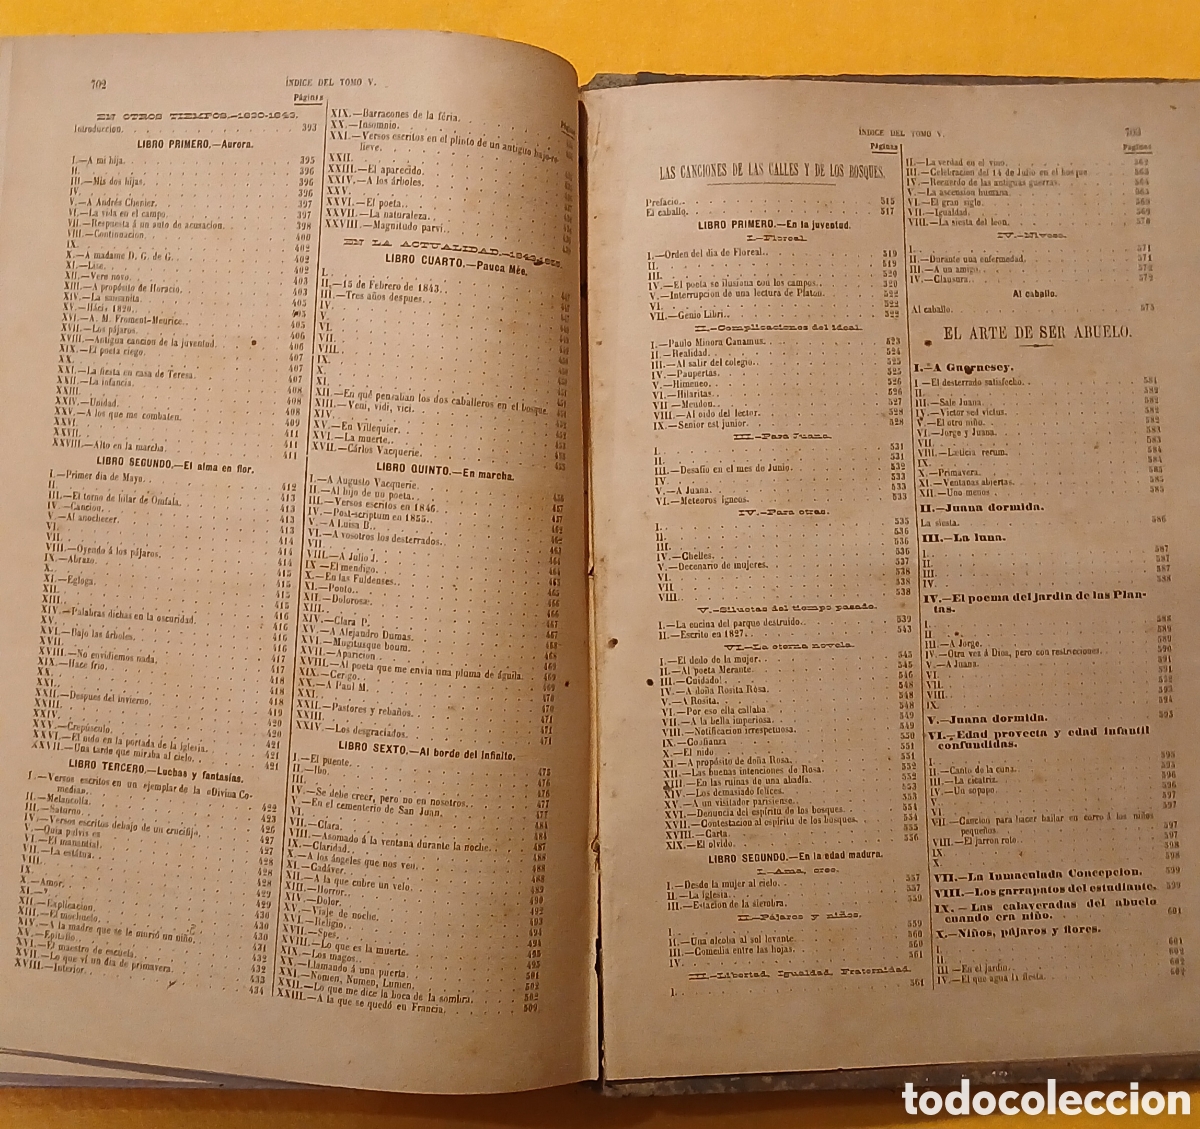 702
ÍNDICE DEL TOMO V.
Páginas
EN OTROS TIEMPOS.—1830-1843.
Introduccion. 393
LIBRO PRIMERO.—Aurora.
I.—A mi hija. 395
II. 396
III.—Mis dos hijas. 396
IV. 396
V.—A Andrés Chenier. 397
VI.—La vida en el campo. 397
VII.—Respuesta á un auto de acusacion. 398
VIII.—Continuacion. 400
IX. 402
X.—A madame D. G. de G. 402
XI.—Lise. 402
XII.—Vere novo. 403
XIII.—A propósito de Horacio. 403
XIV.—La sansanita.
XV.—Hácia 1820. 405
XVI.—A. M. Froment-Meurice. 405
XVII.—Los pájaros. 405
XVIII.—Antigua cancion de la juventud. 406
XIX.—El poeta ciego. 406
XX. 407
XXI.—La fiesta en casa de Teresa. 407
XXII.—La infancia. 407
XXIII. 408
XXIV.—Unidad. 408
XXV.—A los que me combaten. 409
XXVI. 409
XXVII. 411
XXVIII.—Alto en la marcha. 411
LIBRO SEGUNDO.—El alma en flor.
I.—Primer dia de Mayo. 412
II. 413
III.—El torno de hilar de Omfala. 413
IV.—Cancion. 413
V.—Al anochecer. 413
VI.
VII. 414
VIII.—Oyendo á los pájaros. 414
IX.—Abrazo. 415
X. 415
XI.—Egloga. 415
XII.
XIII. 416
XIV.—Palabras dichas en la oscuridad. 416
XV.
XVI.—Bajo los árboles. 416
XVII. 417
XVIII.—No envidiemos nada. 417
XIX.—Hace frio. 418
XX. 418
XXI.
XXII.—Despues del invierno. 418
XXIII. 419
XXIV. 420
XXV.—Crepúsculo. 420
XXVI.—El nido en la portada de la iglesia. 421
XXVII.—Una tarde que miraba al cielo. 421
LIBRO TERCERO.—Luchas y fantasías.
I.—Versos escritos en un ejemplar de la «Divina Comedia». 422
II.—Melancolía. 423
III.—Saturno. 426
IV.—Versos escritos debajo de un crucifijo. 427
V.—Quia pulvis es 427
VI.—El manantial. 428
VII.—La estátua. 428
VIII. 428
IX.
X.—Amor. 429
XI.—? 429
XII.—Explicacion. 430
XIII.—El mochuelo. 430
XIV.—A la madre que se le murió un niño. 431
XV.—Epitafio. 432
XVI.—El maestro de escuela. 432
XVII.—Lo que ví un dia de primavera. 433
XVIII.—Interior. 434
XIX.—Barracones de la féria.
XX.—Insomnio.
XXI.—Versos escritos en el plinto de un antiguo bajo-relieve.
XXII.
XXIII.—El aparecido.
XXIV.—A los árboles.
XXV.
XXVI.—El poeta.
XXVII.—La naturaleza.
XXVIII.—Magnitudo parvi.
EN LA ACTUALIDAD.—1843-1855.
LIBRO CUARTO.—Pauca Meæ.
I.
II.—15 de Febrero de 1843.
III.—Tres años despues.
IV.
V.
VI.
VII.
VIII.
IX.
X.
XI.
XII.—En qué pensaban los dos caballeros en el bosque.
XIII.—Veni, vidi, vici.
XIV.
XV.—En Villequier.
XVI.—La muerte.
XVII.—Cárlos Vacquerie.
LIBRO QUINTO.—En marcha.
I.—A Augusto Vacquerie.
II.—Al hijo de un poeta.
III.—Versos escritos en 1846. 457
IV.—Post-scriptum en 1855. 462
V.—A Luisa B. 462
VI.—A vosotros los desterrados. 463
VII.
VIII.—A Julio J. 464
IX.—El mendigo. 465
X.—En las Fuldenses.
XI.—Ponto. 466
XII.—Dolorosæ. 466
XIII.
XIV.—Clara P. 467
XV.—A Alejandro Dumas. 467
XVI.—Mugitusque boum. 468
XVII.—Aparicion. 468
XVIII.—Al poeta que me envia una pluma de águila. 469
XIX.—Cerigo. 469
XX.—A Paul M. 470
XXI.
XXII.—Pastores y rebaños. 470
XXIII. 471
XXIV.—Los desgraciados. 471
LIBRO SEXTO.—Al borde del infinito.
I.—El puente. 475
II.—Ibo. 476
III.
IV.—Se debe creer, pero no en nosotros. 477
V.—En el cementerio de San Juan. 477
VI.
VII.—Clara. 484
VIII.—Asomado á la ventana durante la noche. 484
IX.—Claridad. 488
X.—A los ángeles que nos ven. 488
XI.—Cadáver. 488
XII.—A la que cubre un velo. 489
XIII.—Horror. 490
XIV.—Dolor. 492
XV.—Viaje de noche. 493
XVI.—Religio. 494
XVII.—Spes. 494
XVIII.—Lo que es la muerte. 495
XIX.—Los magos. 495
XX.—Llamando á una puerta. 501
XXI.—Nomen, Numen, Lumen. 502
XXII.—Lo que me dice la boca de la sombra. 502
XXIII.—A la que se quedó en Francia. 509
ÍNDICE DEL TOMO V. 703
Páginas
LAS CANCIONES DE LAS CALLES Y DE LOS BOSQUES.
Prefacio. 515
El caballo. 517
LIBRO PRIMERO.—En la juventud.
I.—Floreal.
I.—Orden del dia de Floreal. 519
II. 519
III. 520
IV.—El poeta se ilusiona con los campos. 520
V.—Interrupcion de una lectura de Platon. 522
VI. 522
VII.—Genio Libri. 522
II.—Complicaciones del ideal.
I.—Paulo Minora Canamus. 523
II.—Realidad. 524
III.—Al salir del colegio. 525
IV.—Paupertas. 525
V.—Himeneo. 526
VI.—Hilaritas. 526
VII.—Meudon. 527
VIII.—Al oido del lector. 528
IX.—Senior est junior. 528
III.—Para Juana.
I. 531
II. 531
III.—Desafío en el mes de Junio. 532
IV. 533
V.—A Juana. 533
VI.—Meteoros ígneos. 533
IV.—Para otras.
I. 535
II. 536
III. 536
IV.—Chelles. 536
V.—Decenario de mujeres. 537
VI. 538
VII. 538
VIII. 538
V.—Siluetas del tiempo pasado.
I.—La encina del parque destruido. 539
II.—Escrito en 1827. 543
VI.—La eterna novela.
I.—El dedo de la mujer. 545
II.—Al poeta Merante. 545
III.—Cuidado! 546
IV.—A doña Rosita Rosa. 548
V.—A Rosita. 548
VI.—Por eso ella callaba. 549
VII.—A la bella imperiosa. 549
VIII.—Notificacion irrespetuosa. 549
IX.—Confianza 550
X.—El nido 551
XI.—A propósito de doña Rosa. 551
XII.—Las buenas intenciones de Rosa. 552
XIII.—En las ruinas de una abadía. 552
XIV.—Los demasiado felices. 553
XV.—A un visitador parisiense. 553
XVI.—Denuncia del espíritu de los bosques. 554
XVII.—Contestacion al espíritu de los bosques. 554
XVIII.—Carta. 555
XIX.—El olvido. 556
LIBRO SEGUNDO.—En la edad madura.
I.—Ama, cree.
I.—Desde la mujer al cielo. 557
II.—La Iglesia. 557
III.—Estacion de la siembra. 559
II.—Pájaros y niños.
I. 559
II.—Una alcoba al sol levante. 560
III.—Comedia entre las hojas. 560
IV. 561
III.—Libertad, Igualdad, Fraternidad.
I. 561
Páginas
II.—La verdad en el vino. 562
III.—Celebracion del 14 de Julio en el bosque 563
IV.—Recuerdo de las antiguas guerras. 564
V.—La ascension humana. 565
VI.—El gran siglo. 569
VII.—Igualdad. 569
VIII.—La siesta del leon. 570
IV.—Nivoso.
I. 571
II.—Durante una enfermedad. 571
III.—A un amigo. 572
IV.—Clausura. 572
Al caballo.
Al caballo. 573
EL ARTE DE SER ABUELO.
I.—A Guernesey.
I—El desterrado satisfecho. 581
II. 582
III.—Sale Juana. 582
IV.—Victor sed victus. 582
V.—El otro niño. 583
VI.—Jorge y Juana. 583
VII. 584
VIII.—Lætitia rerum. 584
IX. 584
X.—Primavera. 585
XI.—Ventanas abiertas. 585
XII.—Uno menos. 585
II.—Juana dormida.
La siesta. 586
III.—La luna.
I. 587
II. 587
III. 587
IV. 588
IV.—El poema del jardin de las Plantas.
I. 588
II. 589
III.—A Jorge. 589
IV.—Otra vez á Dios, pero con restricciones. 590
V.—A Juana. 591
VI. 592
VII. 592
VIII. 593
IX. 594
V.—Juana dormida. 595
VI.—Edad provecta y edad infantil confundidas.
I. 595
II.—Canto de la cuna. 596
III.—La cicatriz. 596
IV.—Un sopapo. 596
V. 597
VI.
VII.—Cancion para hacer bailar en corro á los niños pequeños. 597
VIII.—El jarron roto. 597
IX. 598
X. 598
VII.—La Inmaculada Concepcion. 599
VIII.—Los garrapatos del estudiante. 599
IX.—Las calaveradas del abuelo cuando era niño. 601
X.—Niños, pájaros y flores.
I. 601
II. 601
III.—En el jardin. 602
IV.—El que agua la fiesta. 602
todocoleccion